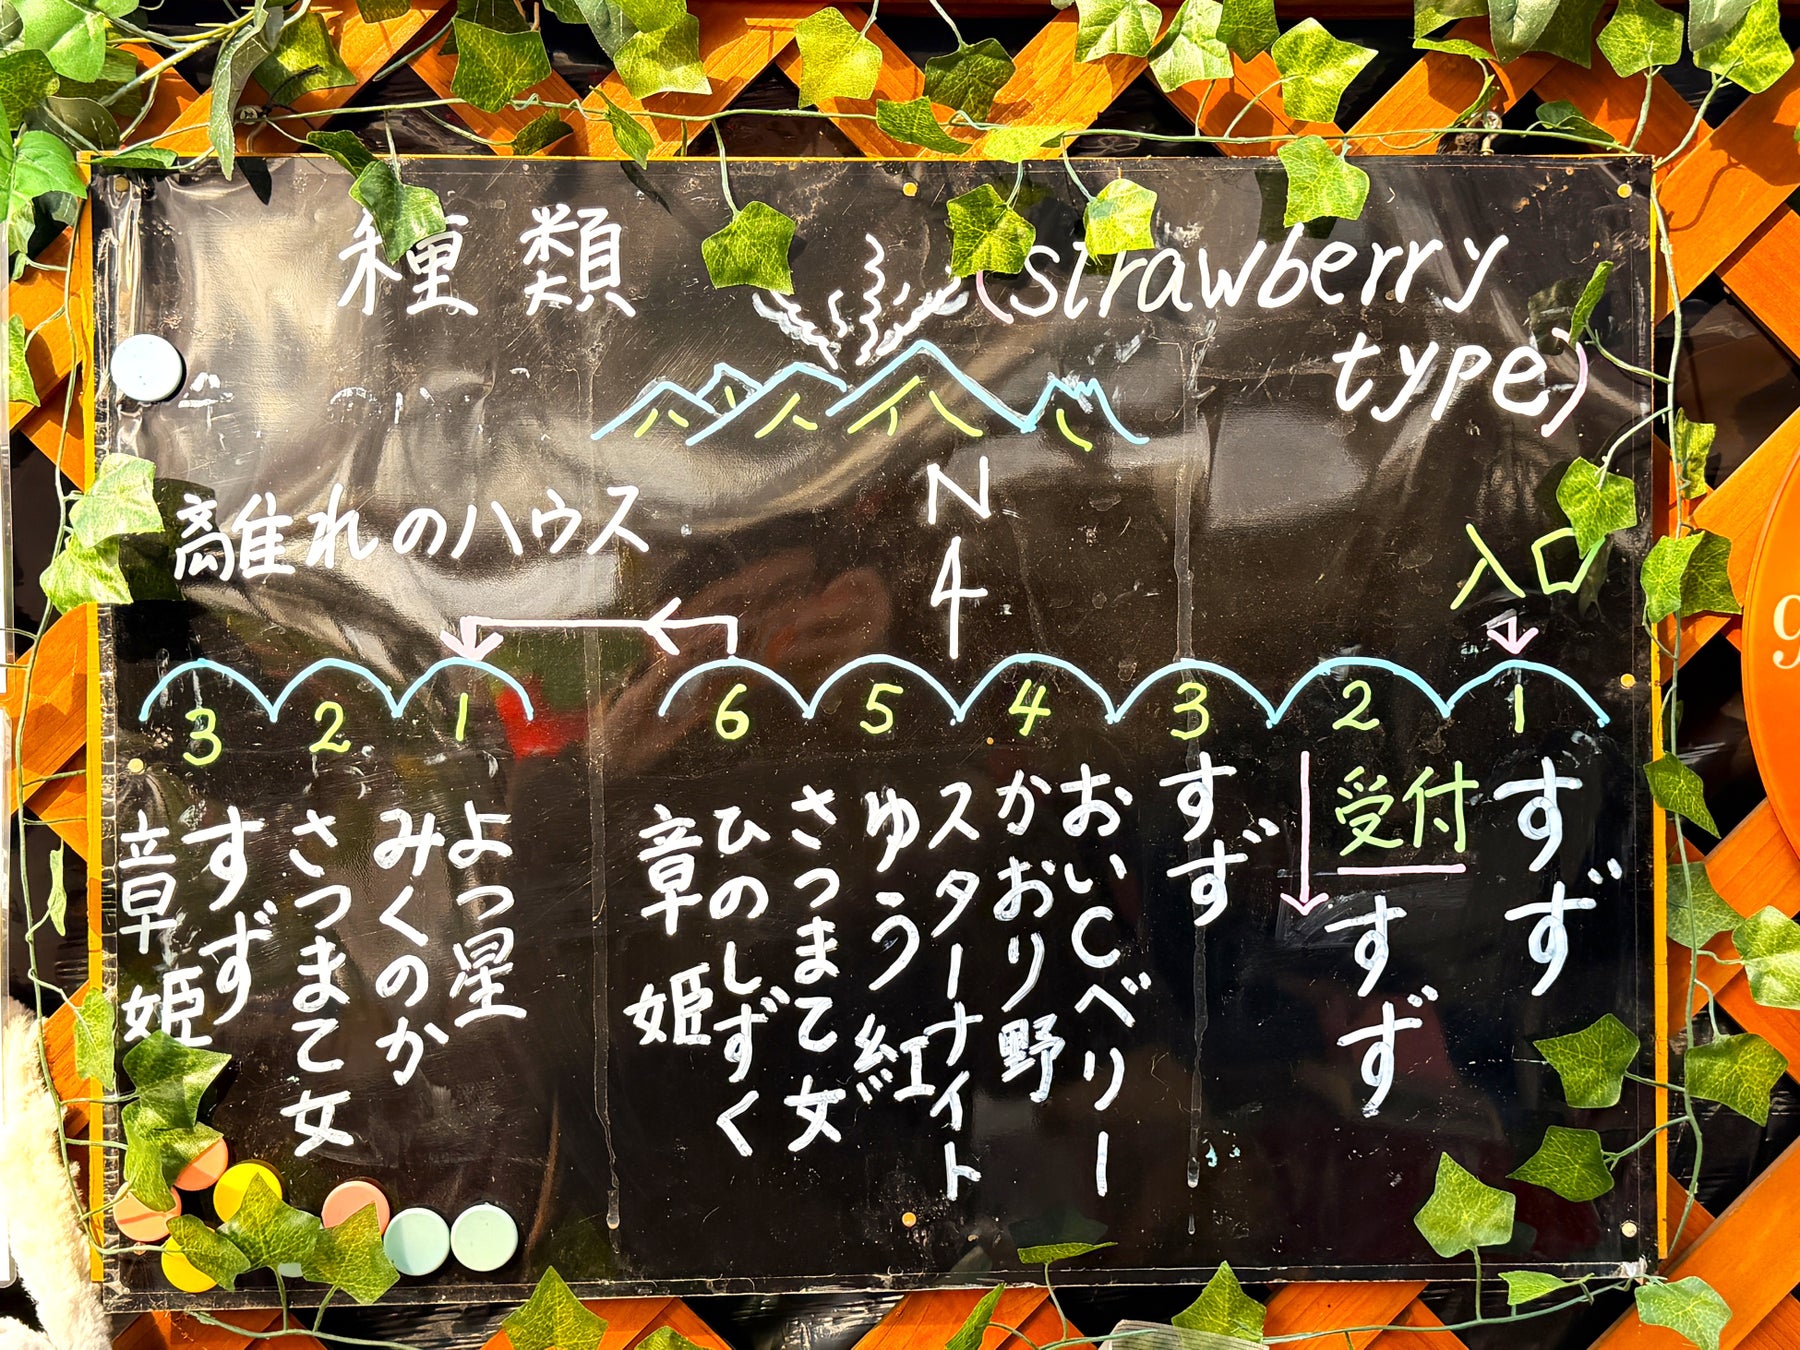 種類
(strawberry
type)
N
4
離れのハウス
入口
3 2 1 6 5 4 3 2 1
すず
受付
すず
すず
おいCベリー
かおり野
スターナイト
ゆう紅
さつまて女
ひのしずく
章姫
よつ星
みくのか
さつまて女
すず
章姫